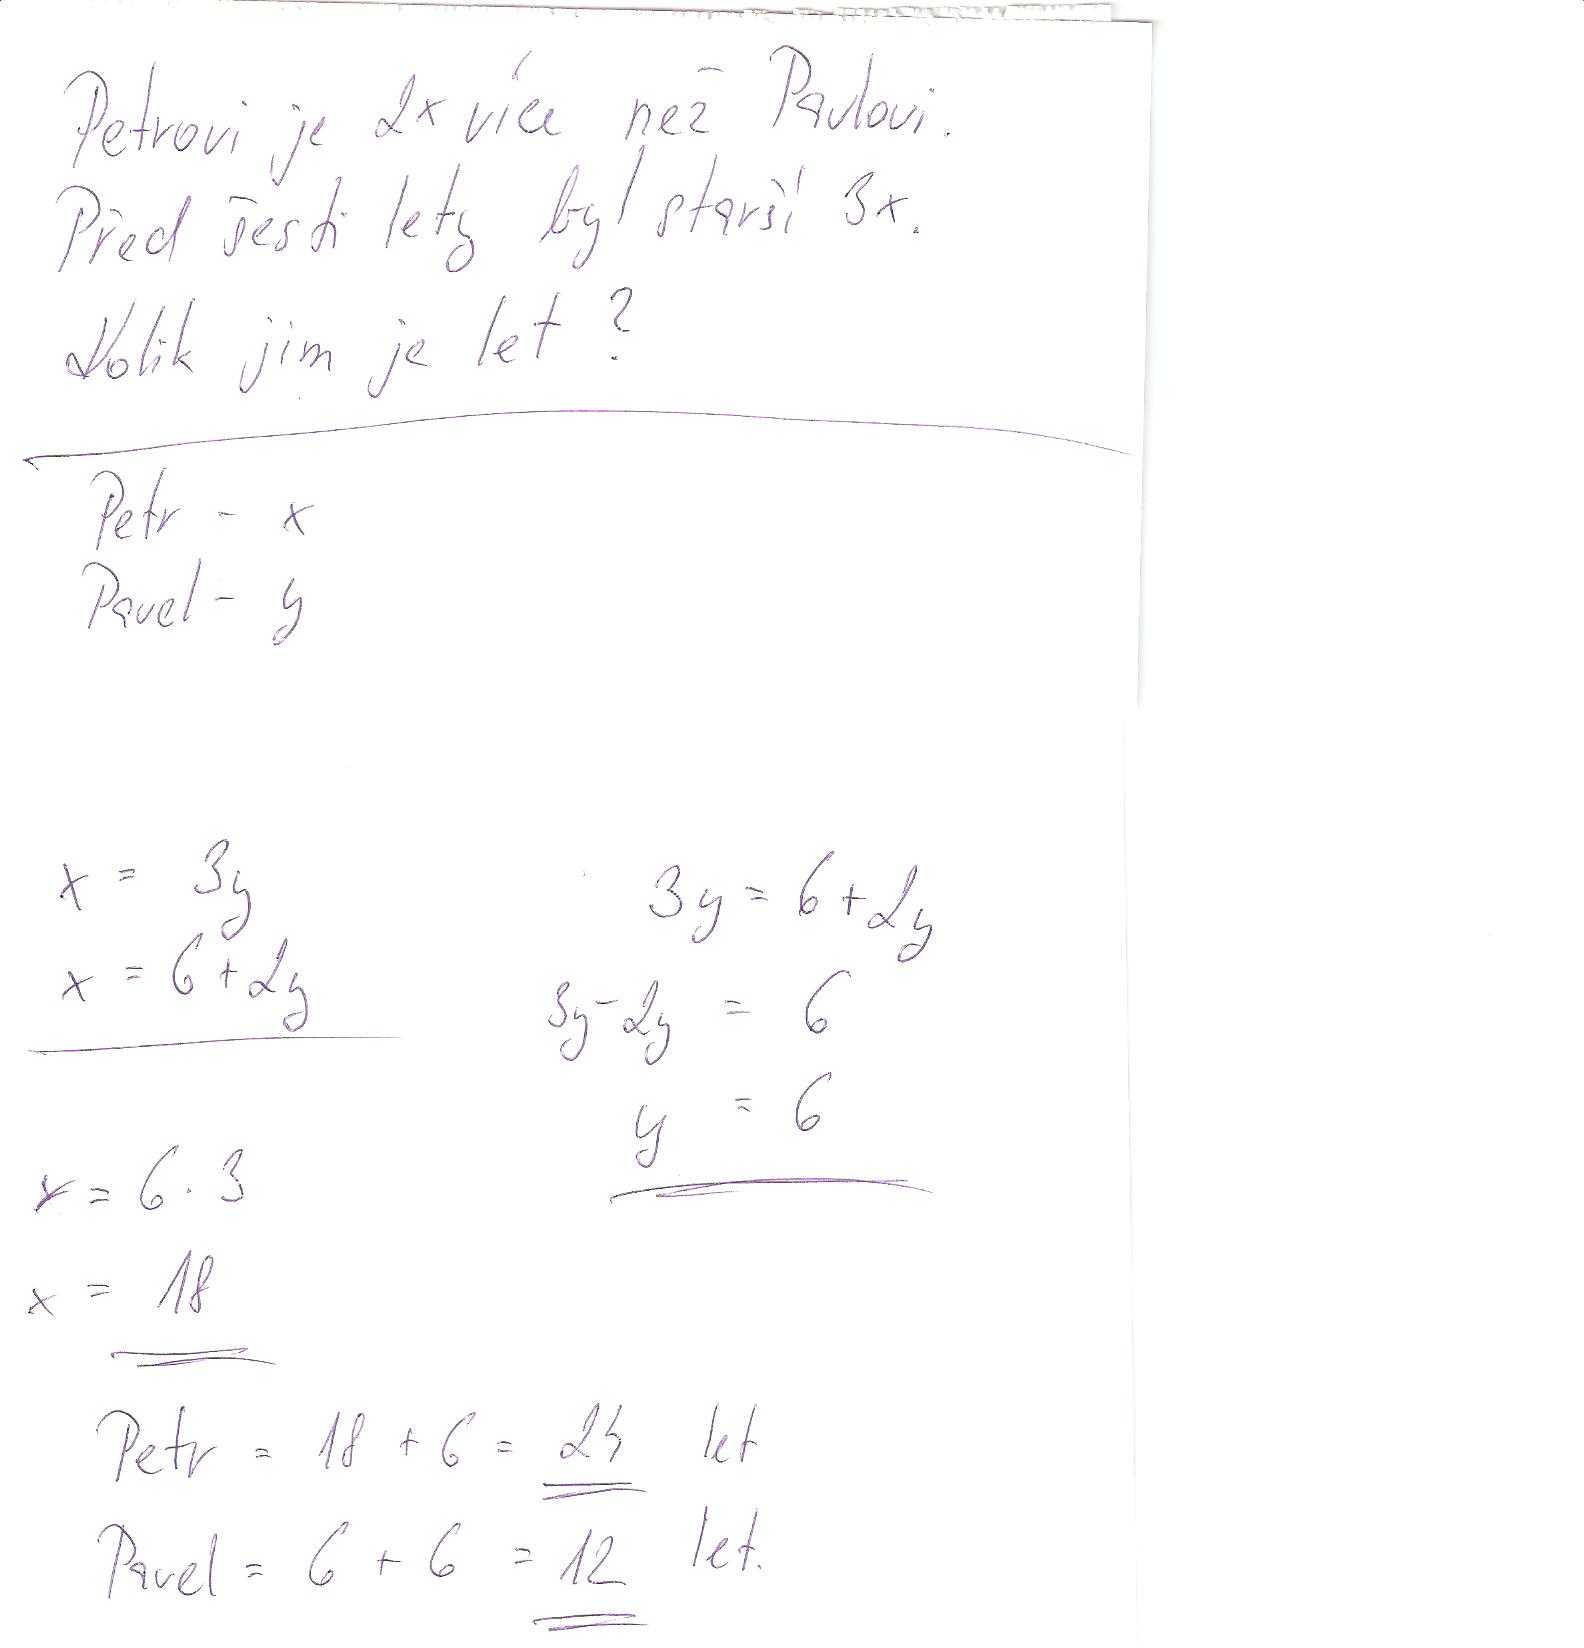 Petrovi je 2x více než Pavlovi.
Před šesti lety byl starší 3x.
Kolik jim je let?
Petr - x
Pavel - y
x = 3y
x = 6+2y
3y = 6+2y
3y-2y = 6
y = 6
x = 6.3
x = 18
Petr = 18 + 6 = 24 let
Pavel = 6 + 6 = 12 let.